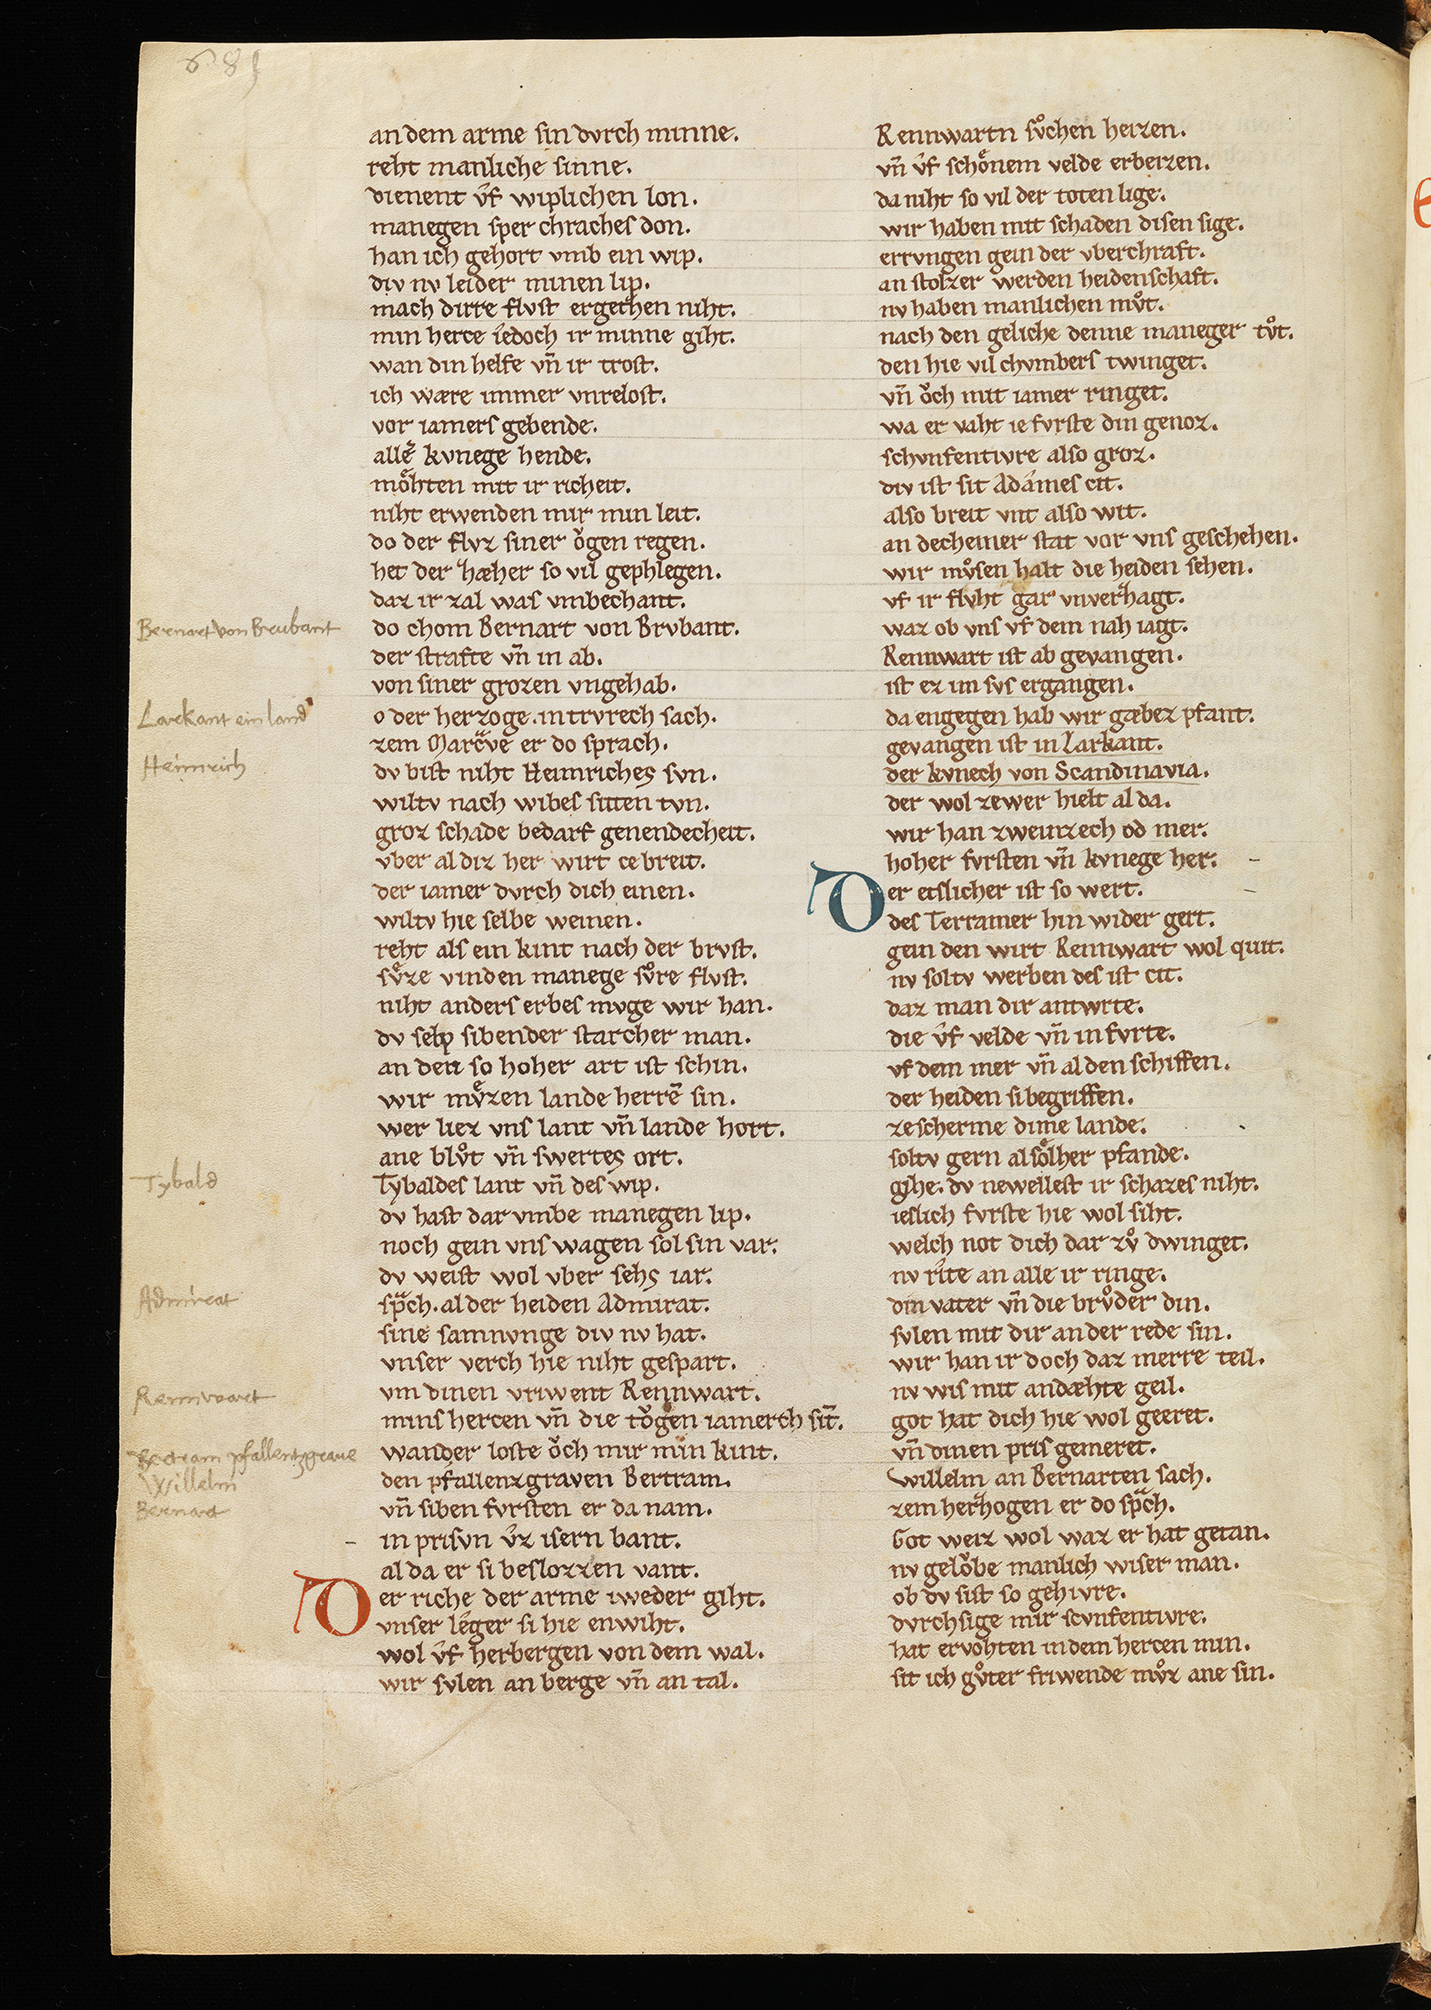 681
an dem arme sin dvrch minne.
reht manliche sinne.
dienent vf wiplichen lon.
manegen sper chraches don.
han ich gehort vmb ein wip.
div nv leider minen lip.
mach dirre flvst ergetzhen niht.
min herce iedoch ir minne giht.
wan din helfe vn̄ ir trost.
ich wære immer vnrelost.
vor iamers gebende.
aller kvnege hende.
moͤhten mit ir richeit.
niht erwenden mir min leit.
do der flvz siner oͮgen regen.
het der hæher so vil gephlegen.
daz ir zal was vmbechant.
Bernart von Brubant
do chom Bernart von Brvbant.
der strafte vn̄ in ab.
von siner grozen vngehab.
Larkant ein land
o der herzoge. in trvrech sach.
zem Marcͣve er do sprach.
Heimrich
dv bist niht Heimriches svn.
wiltv nach wibes sitten tvn.
groz schade bedarf genendecheit.
vber al diz her wirt ce breit.
der iamer dvrch dich einen.
wiltv hie selbe weinen.
reht als ein kint nach der brvst.
svͤze vinden manege svͦre flvst.
niht anders erbes mvge wir han.
dv selp sibender starcher man.
an den so hoher art ist schin.
wir mvͤzen lande herre sin.
wer liez vns lant vn̄ lande hort.
ane blvͦt vn̄ swertes ort.
Tybald
Tybaldes lant vn̄ des wip.
dv hast dar vmbe manegen lip.
noch gein vns wagen sol sin var.
dv weist wol vber sehs iar.
Admirat
spͣch. al der heiden Admirat.
sine samnvnge div nv hat.
vnser verch hie niht gespart.
Rennwart
vm dinen vriwent Rennwart.
mins hercen vn̄ die toͮgen iamerch sit̄.
Bertram pfallentzgraue
wander loste oͮch mir min kint.
Willelm
den pfallenzgraven Bertram.
Bernart
vn̄ siben fvrsten er da nam.
in prisvn vz isern bant.
al da er si beslozzen vant.
Der riche der arme iweder giht.
vnser leger si hie enwiht.
wol vf herbergen von dem wal.
wir svlen an berge vn̄ an tal.
Rennwartn svͦchen herzen.
vn̄ vf schoͤnem velde erberzen.
da niht so vil der toten lige.
wir haben mit schaden disen sige.
errvngen gein der vberchraft.
an stolzer werden heidenschaft.
nv haben manlichen mvͦt.
nach den geliche denne maneger tvͦt.
den hie vil chvmbers twinget.
vn̄ oͮch mit iamer ringet.
wa er vaht ie fvrste din genoz.
schvnfentivre also groz.
div ist sit Adames cit.
also breit vnt also wit.
an decheiner stat vor vns geschehen.
wir mvͦsen halt die heiden sehen.
vf ir flvht gar vnverzhagt.
waz ob vns vf dem nah iagt.
Rennwart ist ab gevangen.
ist ez im svs ergangen.
da engegen hab wir gæbez pfant.
gevangen ist in Larkant.
der kvnech von Scandinavia.
der wol zewer hielt al da.
wir han zweinzech od mer.
hoher fvrsten vn̄ kvnege her.
Der etslicher ist so wert.
des Terramer hin wider gert.
gein den wirt Rennwart wol quit.
nv soltv werben des ist cit.
daz man dir antwrte.
die vf velde vn̄ in fvrte.
vf dem mer vn̄ al den schiffen.
der heiden si begriffen.
ze scherme dime lande.
soltv gern al soͤlher pfande.
gihe. dv newellest ir schazes niht.
ieslich fvrste hie wol siht.
welch not dich dar zvͦ dwinget.
nv rite an alle ir ringe.
din vater vn̄ die brvͦder din.
svlen mit dir an der rede sin.
wir han ir doch daz merre teil.
nv wis mit andæhte geil.
got hat dich hie wol geeret.
vn̄ dinen pris gemeret.
Willelm an Bernarten sach.
zem herzhogen er do spͣch.
Got weiz wol waz er hat getan.
nv geloͮbe manlich wiser man.
ob dv sist so gehivre.
dvrch sige mir scvnfentivre.
hat ervohten in dem hercen min.
sit ich gvͦter friwende mvͦz ane sin.